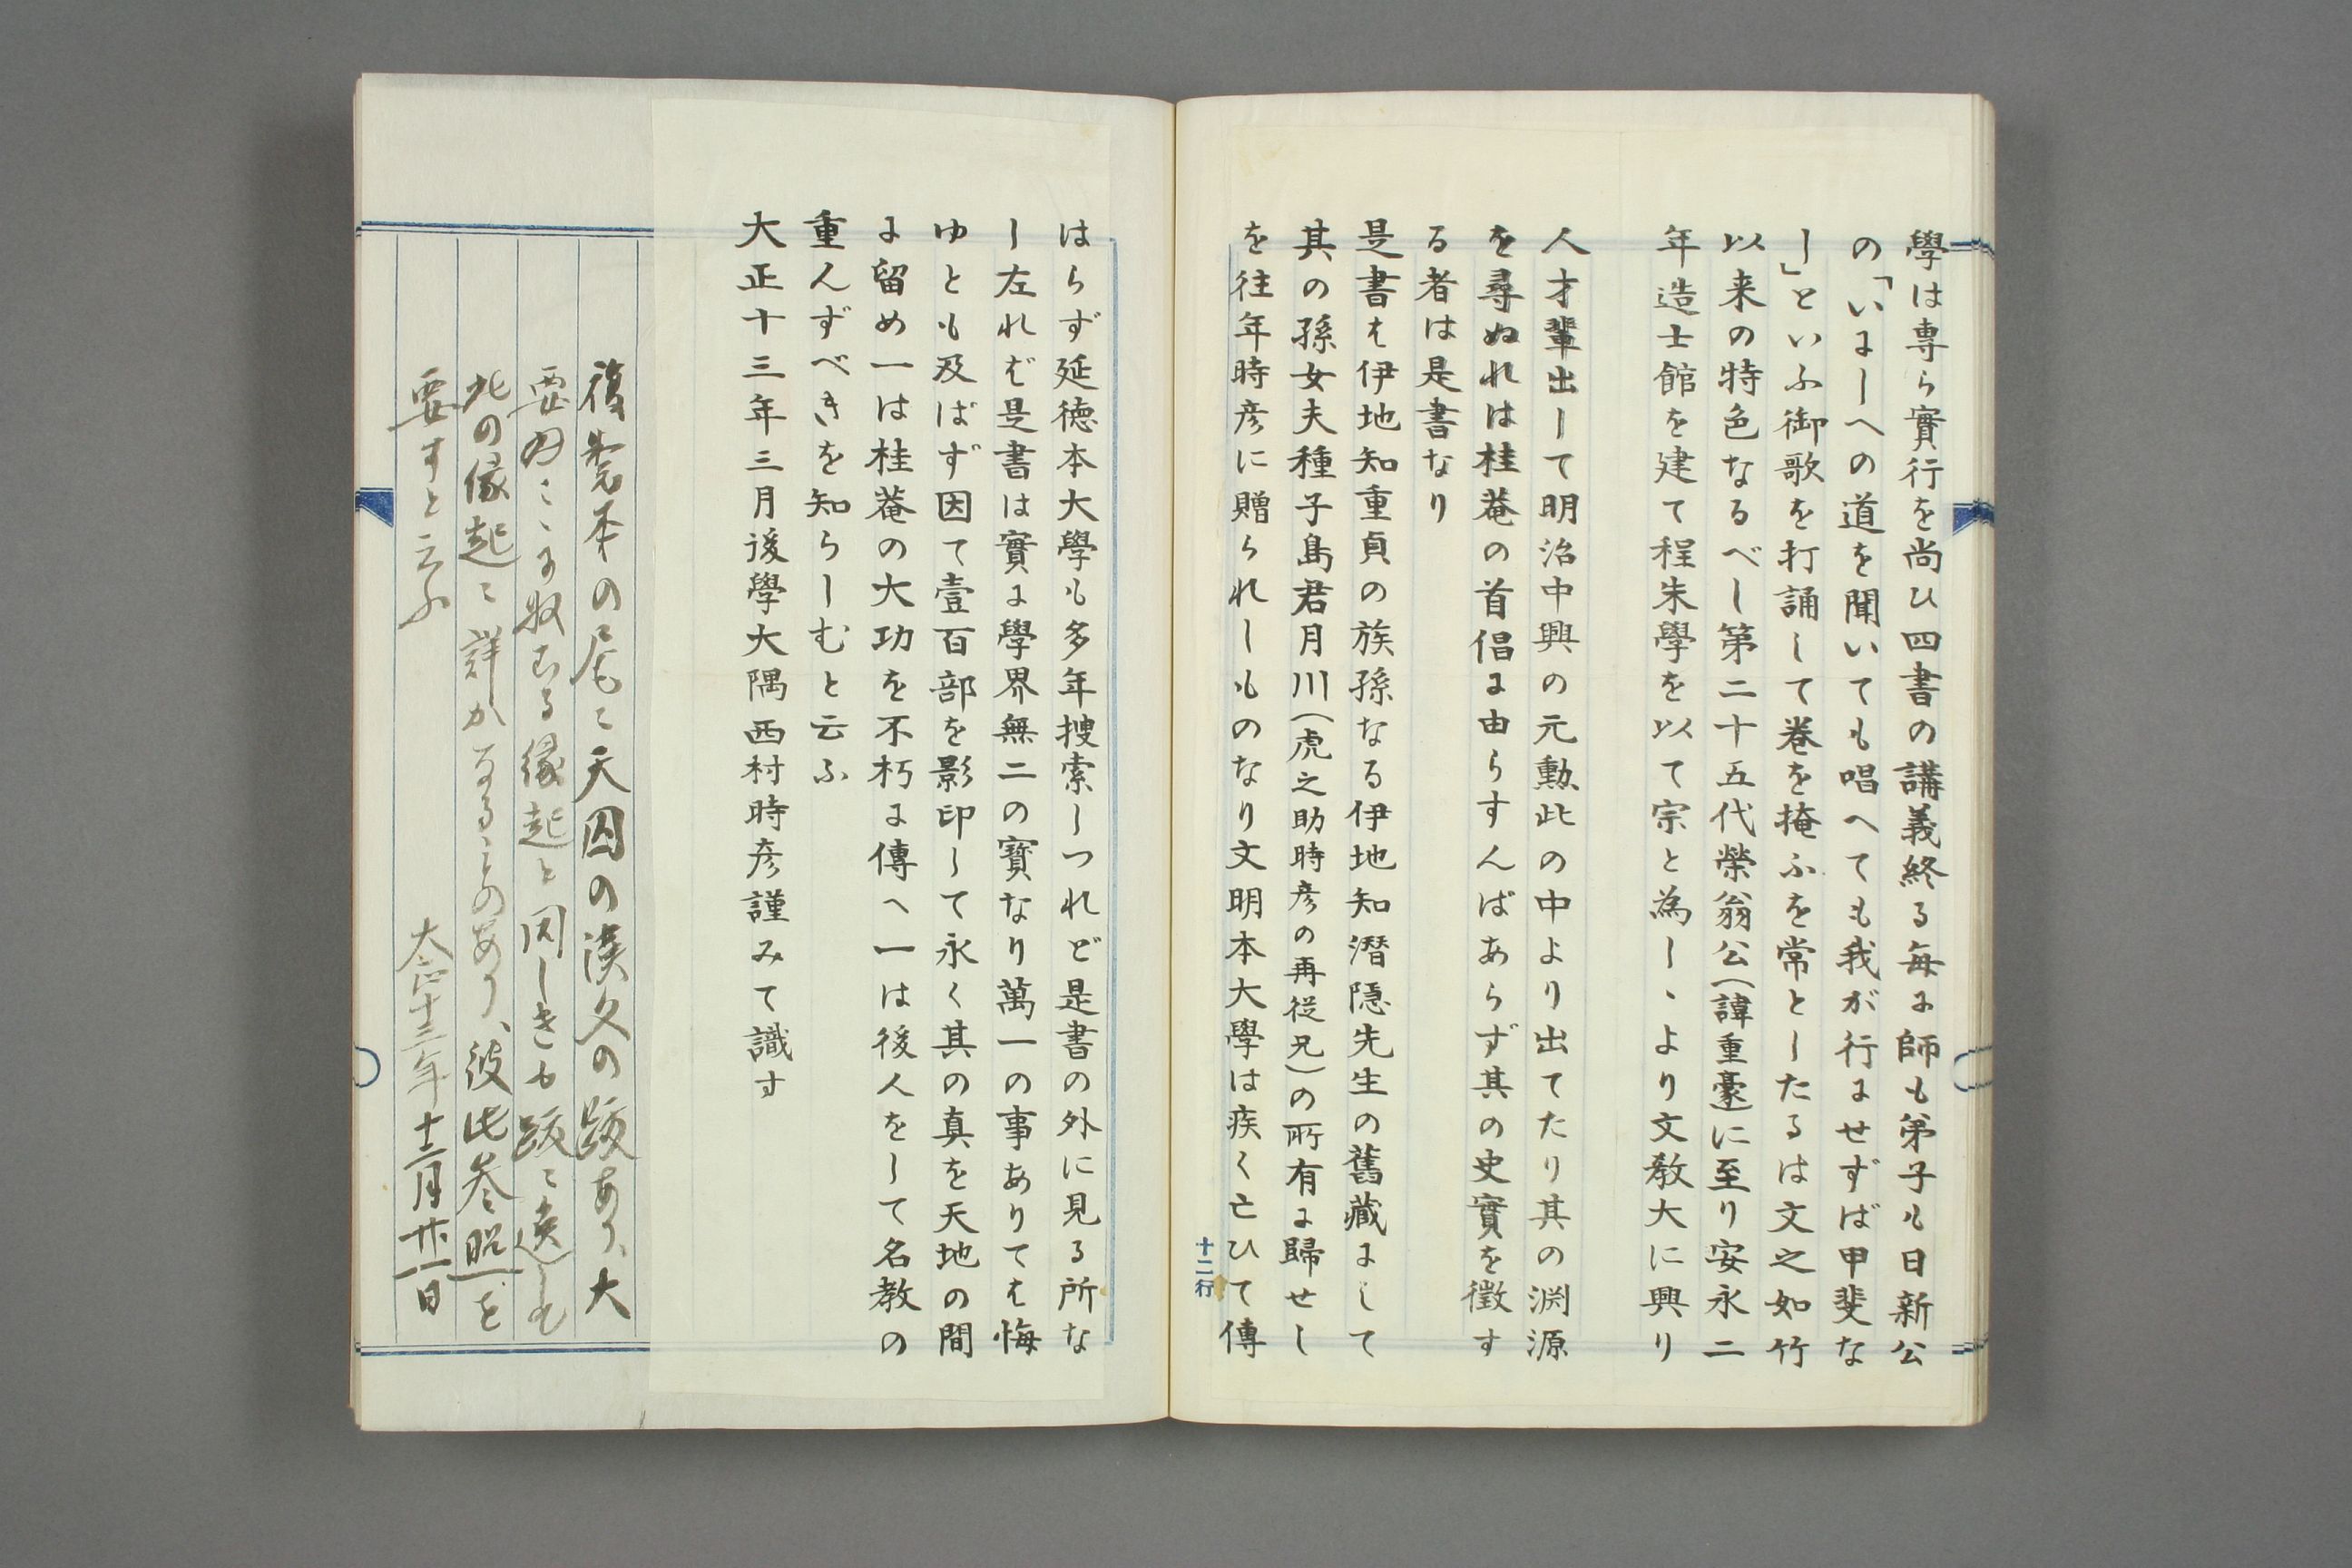 學は専ら實行を尚ひ四書の講義終る毎に師も弟子も日新公
の「いにしへの道を聞いても唱へても我が行にせずば甲斐な
し」といふ御歌を打誦して巻を掩ふを常としたるは文之如竹
以来の特色なるべし第二十五代榮翁公(諱重豪)に至り安永二
年造士館を建て程朱學を以て宗と為しゝより文教大に興り
人才輩出して明治中興の元勲此の中より出てたり其の淵源
を尋ぬれは桂菴の首倡に由らすんばあらず其の史實を徴す
る者は是書なり
是書は伊地知重貞の族孫なる伊地知潛隠先生の舊藏にして
其の孫女夫種子島君月川(虎之助時彦の再従兄)の所有に歸せし
を往年時彦に贈られしものなり文明本大學は疾く亡ひて傳
十二行
はらず延徳本大學も多年搜索しつれど是書の外に見る所な
し左れば是書は實に學界無二の寳なり萬一の事ありては悔
ゆとも及ばず因て壹百部を影印して永く其の真を天地の間
に留め一は桂菴の大功を不朽に傳へ一は後人をして名教の
重んずべきを知らしむと云ふ
大正十三年三月後學大隅西村時彦謹みて識す
複製本の尾に天囚の漢文の跋あり、大
要はここに収むる縁起と同しきも跋に逸しも
此の縁起に詳かなるものあり、彼此参照を
要すと云ふ
大正十三年十二月廿一日